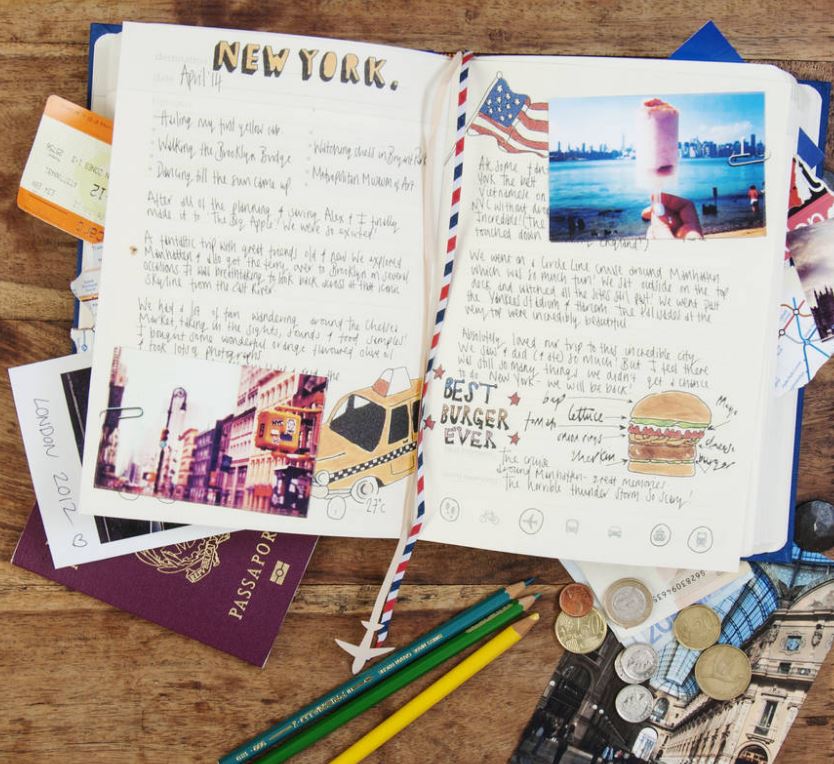 NEW YORK.
date April '14
Hailing my first yellow cab.
Walking the Brooklyn Bridge
Dancing till the sun came up
Watching chess in Bryant Park
Metropolitan Museum of Art
After all of the planning & saving Alex & I finally
made it to 'The Big Apple'! We were so excited!
A fantastic trip with great friends old & new. We explored
Manhattan & also got the ferry over to Brooklyn on several
occasions. It was breathtaking to look back across at that iconic
skyline from the East River
We had a lot of fun wandering around the Chelsea
Market, taking in the sights, sounds & food samples!
I bought some wonderful orange flavoured olive oil
& took lots of photographs
27°c
York the best
Vietnamese
NYC without
Incredible! (The
touched down
England!)
We went on a Circle Line cruise around Manhattan
which was so much fun! We sat outside on the top
deck and watched all the sites sail past! We went past
the Yankees Stadium & Harlem. The Palisades at the
very top were incredibly beautiful
Absolutely loved our trip to this incredible city
We saw & did (& ate) so much! But I feel there
was still so many things we didn't get a chance
to do. New York - we will be back!
BEST
BURGER
EVER
lettuce
onion rings
Gherkin
Mayo
cheese
burger
The cruise
around Manhattan - great memories.
The horrible thunder storm. So scary!
LONDON 2012
PASSAPOR
6628309463